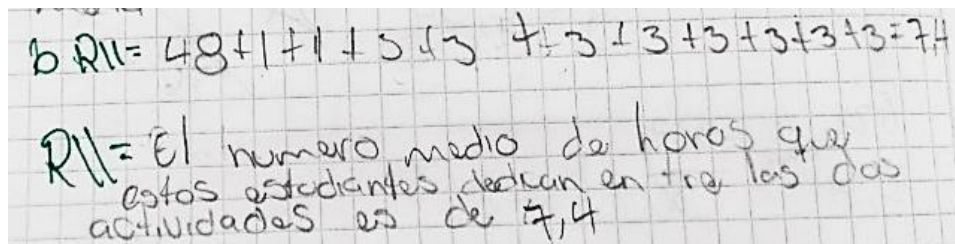 b R||= 48+1+1+3+3 + 3+3+3+3+3+3=7,4
R||= El numero medio de horas que
estos estudiantes dedican entre las dos
actividades es de 7,4